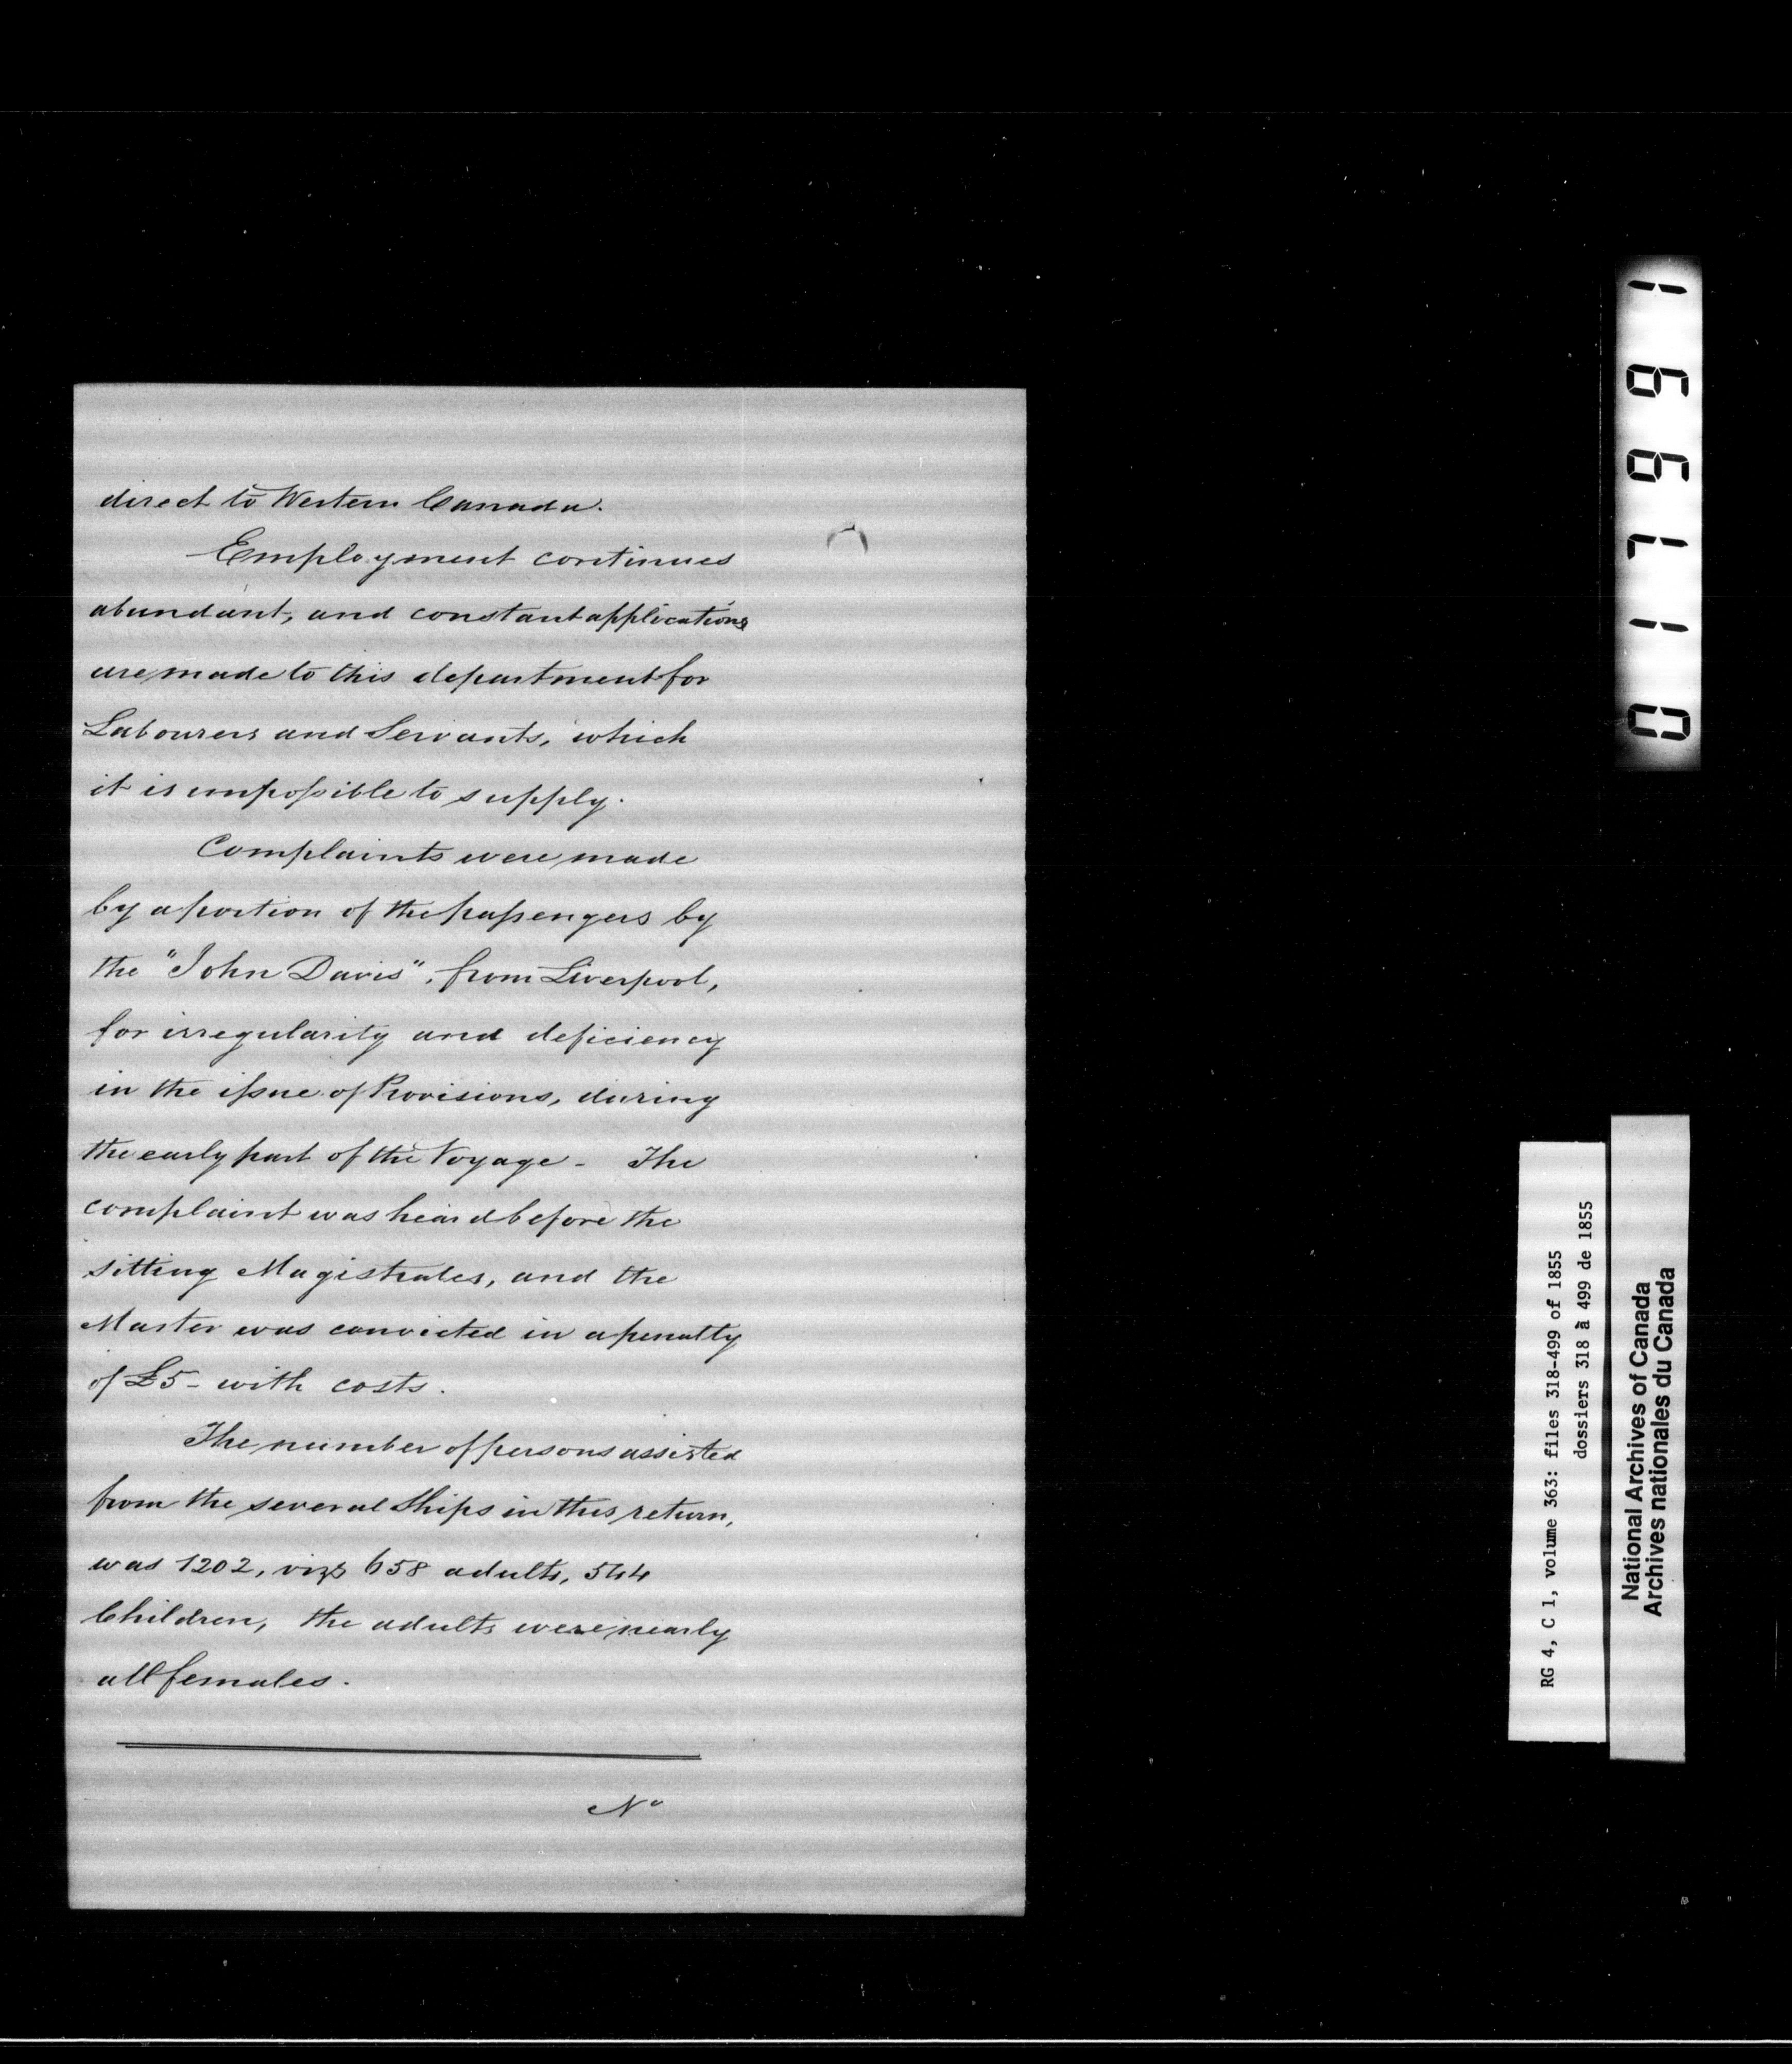 direct to Western Canada.
Employment continues
abundant, and constant applications
are made to this department for
Labourers and Servants, which
it is impossible to supply.
Complaints were made
by a portion of the passengers by
the "John Davis", from Liverpool,
for irregularity and deficiency
in the issue of Provisions, during
the early part of the Voyage - The
complaint was heard before the
sitting Magistrates, and the
Master was convicted in a penalty
of £5 - with costs.
The number of persons assisted
from the several Ships in this return,
was 1202, vizt 658 adults, 544
Children, the adults were nearly
all females.
No
011991
RG 4, C 1, volume 363: files 318-499 of 1855
dossiers 318 à 499 de 1855
National Archives of Canada
Archives nationales du Canada